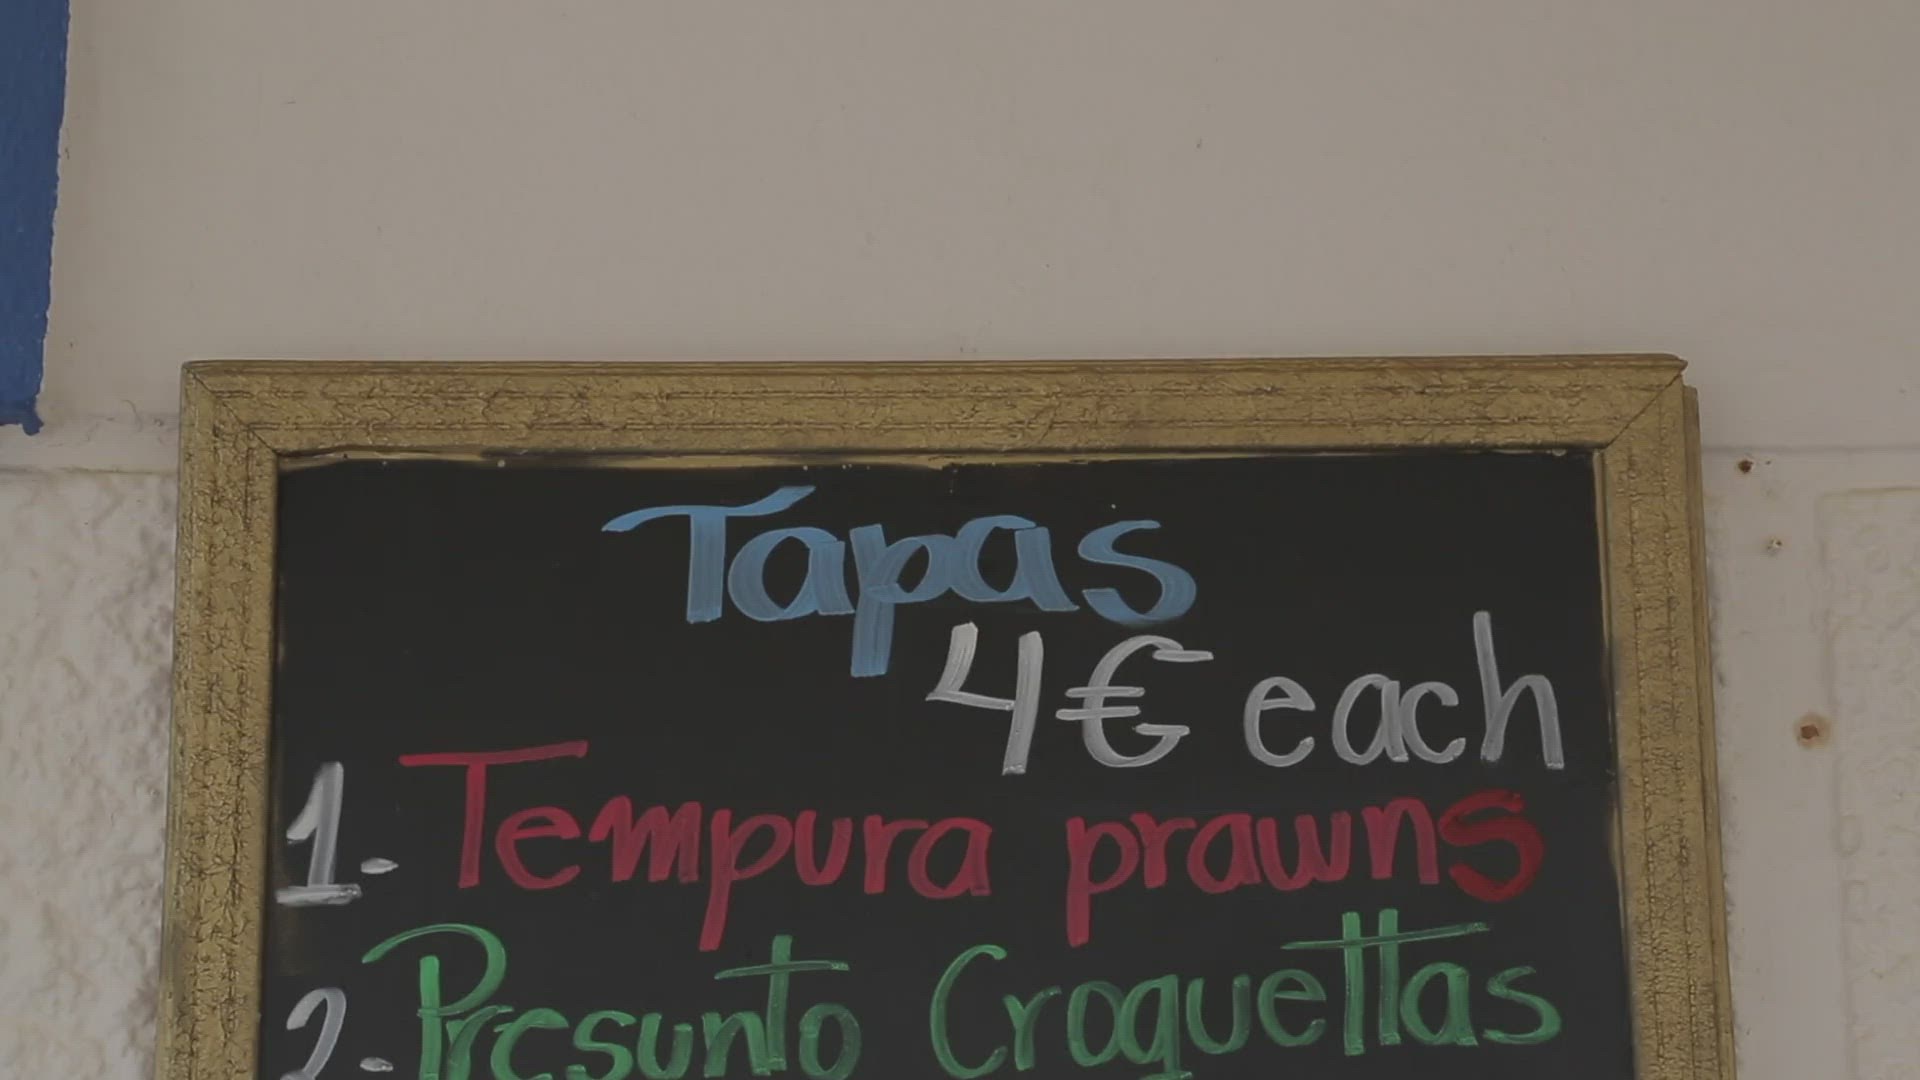 Tapas
4€ each
1. Tempura prawns
2. Presunto Croquettas